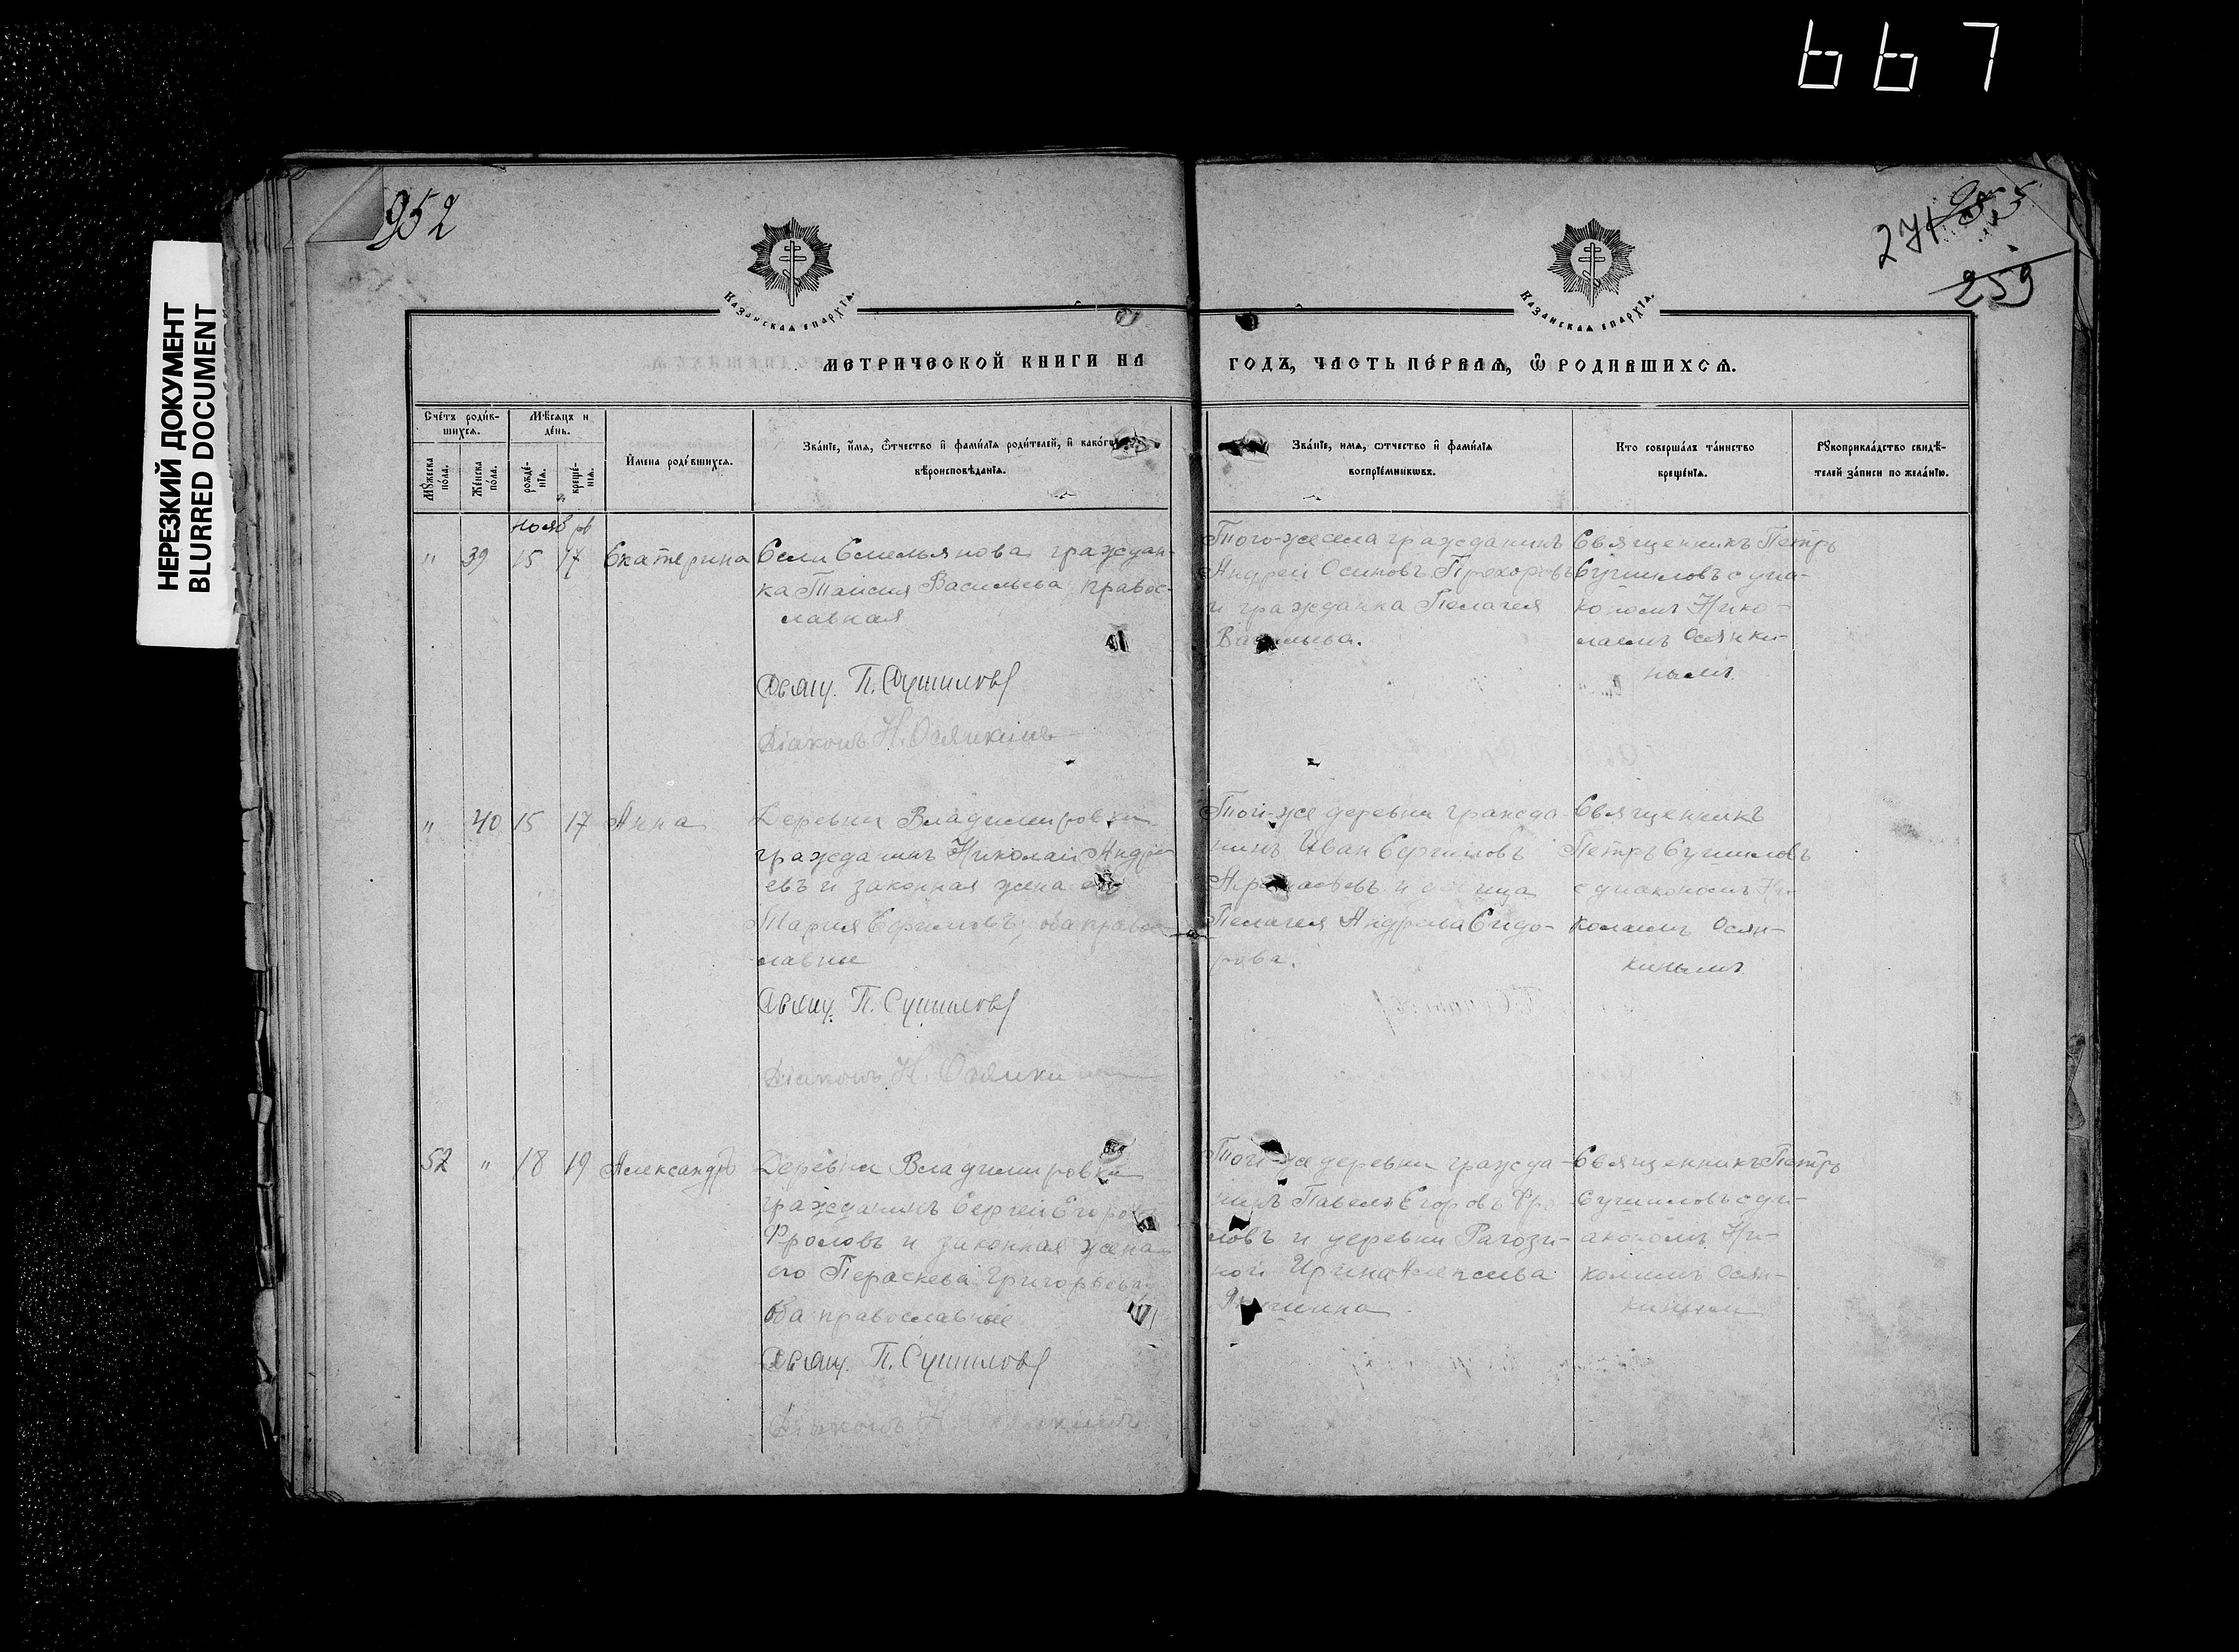 667
НЕРЕЗКИЙ ДОКУМЕНТ
BLURRED DOCUMENT
952
271 255
259
Казанская епархїѧ.
Казанская епархїѧ.
МЕТРИЧЕСКОЙ КНИГИ НА ГОДЪ, ЧАСТЬ ПЕРВАѦ, Ѽ РОДИВШИХСѦ.
Счетъ родив-
шихсѧ.
Мѣсѧцъ и
день.
Мꙋжеска
пола.
Женска
пола.
рожде-
нїѧ.
креще-
нїѧ.
Имена родившихсѧ.
Званїе, имѧ, ѿчество и фамилїѧ родителей, и какогѡ
вѣроисповѣданїѧ.
Званїе, имѧ, ѿчество и фамилїѧ
воспрїемникѡвъ.
Кто совершалъ таинство
крещенїѧ.
Рꙋкоприкладство свидѣ-
телей записи по желанїю.
ноябрь
" 39 15 17 Екатерина
Села Емельянова граждан-
ка Таисия Васильева, правос-
лавная
Свящ. П. Сушиловъ
Діаконъ Н. Осянкинъ
Того-же села гражданинъ
Андрей Осиповъ Прохоровъ
и гражданка Пелагея
Васильева.
Священникъ Петръ
Сушиловъ с диа-
кономъ Нико-
лаемъ Осянки-
нымъ
" 40 15 17 Анна
Деревни Владимировки
гражданинъ Николай Андре-
евъ и законная жена его
Мария Ефимовъ, оба правос-
лавные
Свящ. П. Сушиловъ
Діаконъ Н. Осянкинъ
Той-же деревни гражда-
нинъ Иван
и девица
Пелагея Андреева Сидо-
рова.
Священникъ
Петръ Сушиловъ
с диакономъ Ни-
колаемъ Осян-
кинымъ
52 " 18 19 Александръ
Деревни Владимировки
гражданинъ Сергей Егоровъ
Фроловъ и законная жена
его Пераскева Григорьева,
оба православные
Свящ. П. Сушиловъ
Діаконъ Н. Осянкинъ
Той-же деревни гражда-
нинъ Павелъ Егоровъ Фро-
ловъ и деревни Рагози-
ной Ирина Алексеева
Священникъ Петръ
Сушиловъ с ди-
акономъ Ни-
колаемъ Осян-
кинымъ